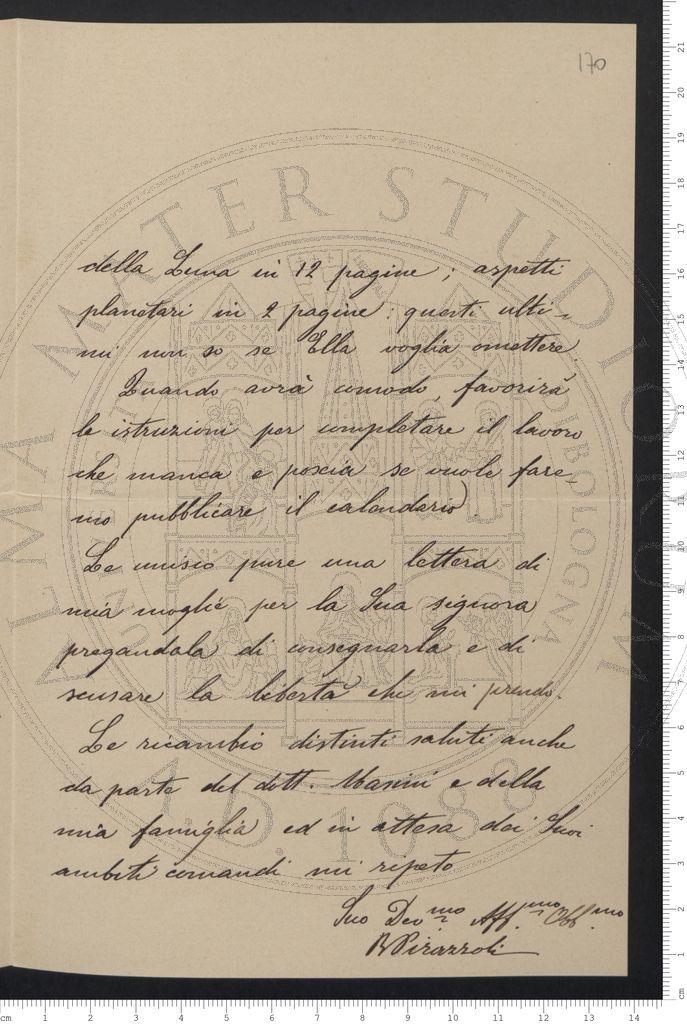 170
della Luna in 12 pagine; aspetti
planetari in 2 pagine: questi ulti-
mi non so se Ella voglia omettere.
Quando avrà comodo, favorirà
le istruzioni per completare il lavoro
che manca e poscia se vuole fare-
mo pubblicare il calendario).
Le unisco pure una lettera di
mia moglie per la Sua signora
pregandola di consegnarla e di
scusare la libertà che mi prendo.
Le ricambio distinti saluti anche
da parte del dott. Masini e della
mia famiglia ed in attesa dei Suoi
ambiti comandi mi ripeto
Suo Dev.mo Aff.mo Obb.mo
R Pirazzoli
ALMA MATER STUDIORUM
A.D. 1088